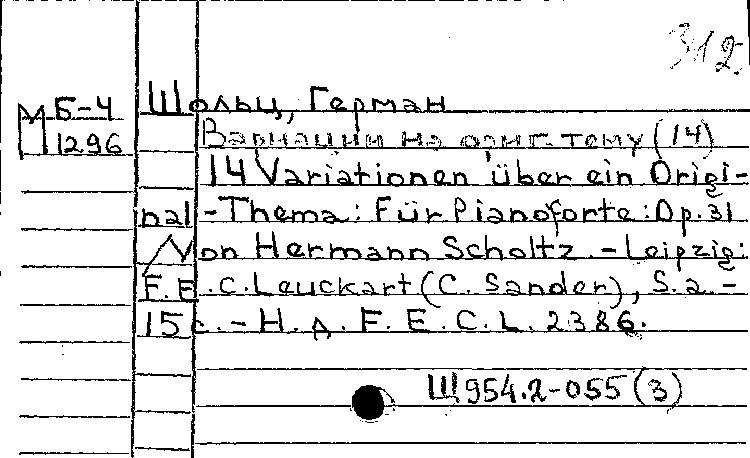 312.
М Б-4 Шольц, Герман
1296 Вариации на ориг. тему (14)
14 Variationen über ein Origi-
nal-Thema: Für Pianoforte: Op. 31
Von Hermann Scholtz. - Leipzig:
F.E.C. Leuckart (C. Sander), S.a. -
15 с. - Н.д. F.E.C.L. 2386.
Щ954.2-055 (3)